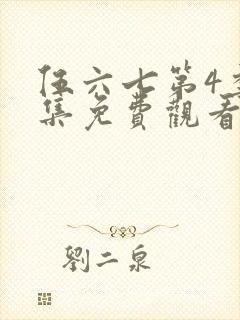 伍六七第4季
集免費觀看
劉二泉